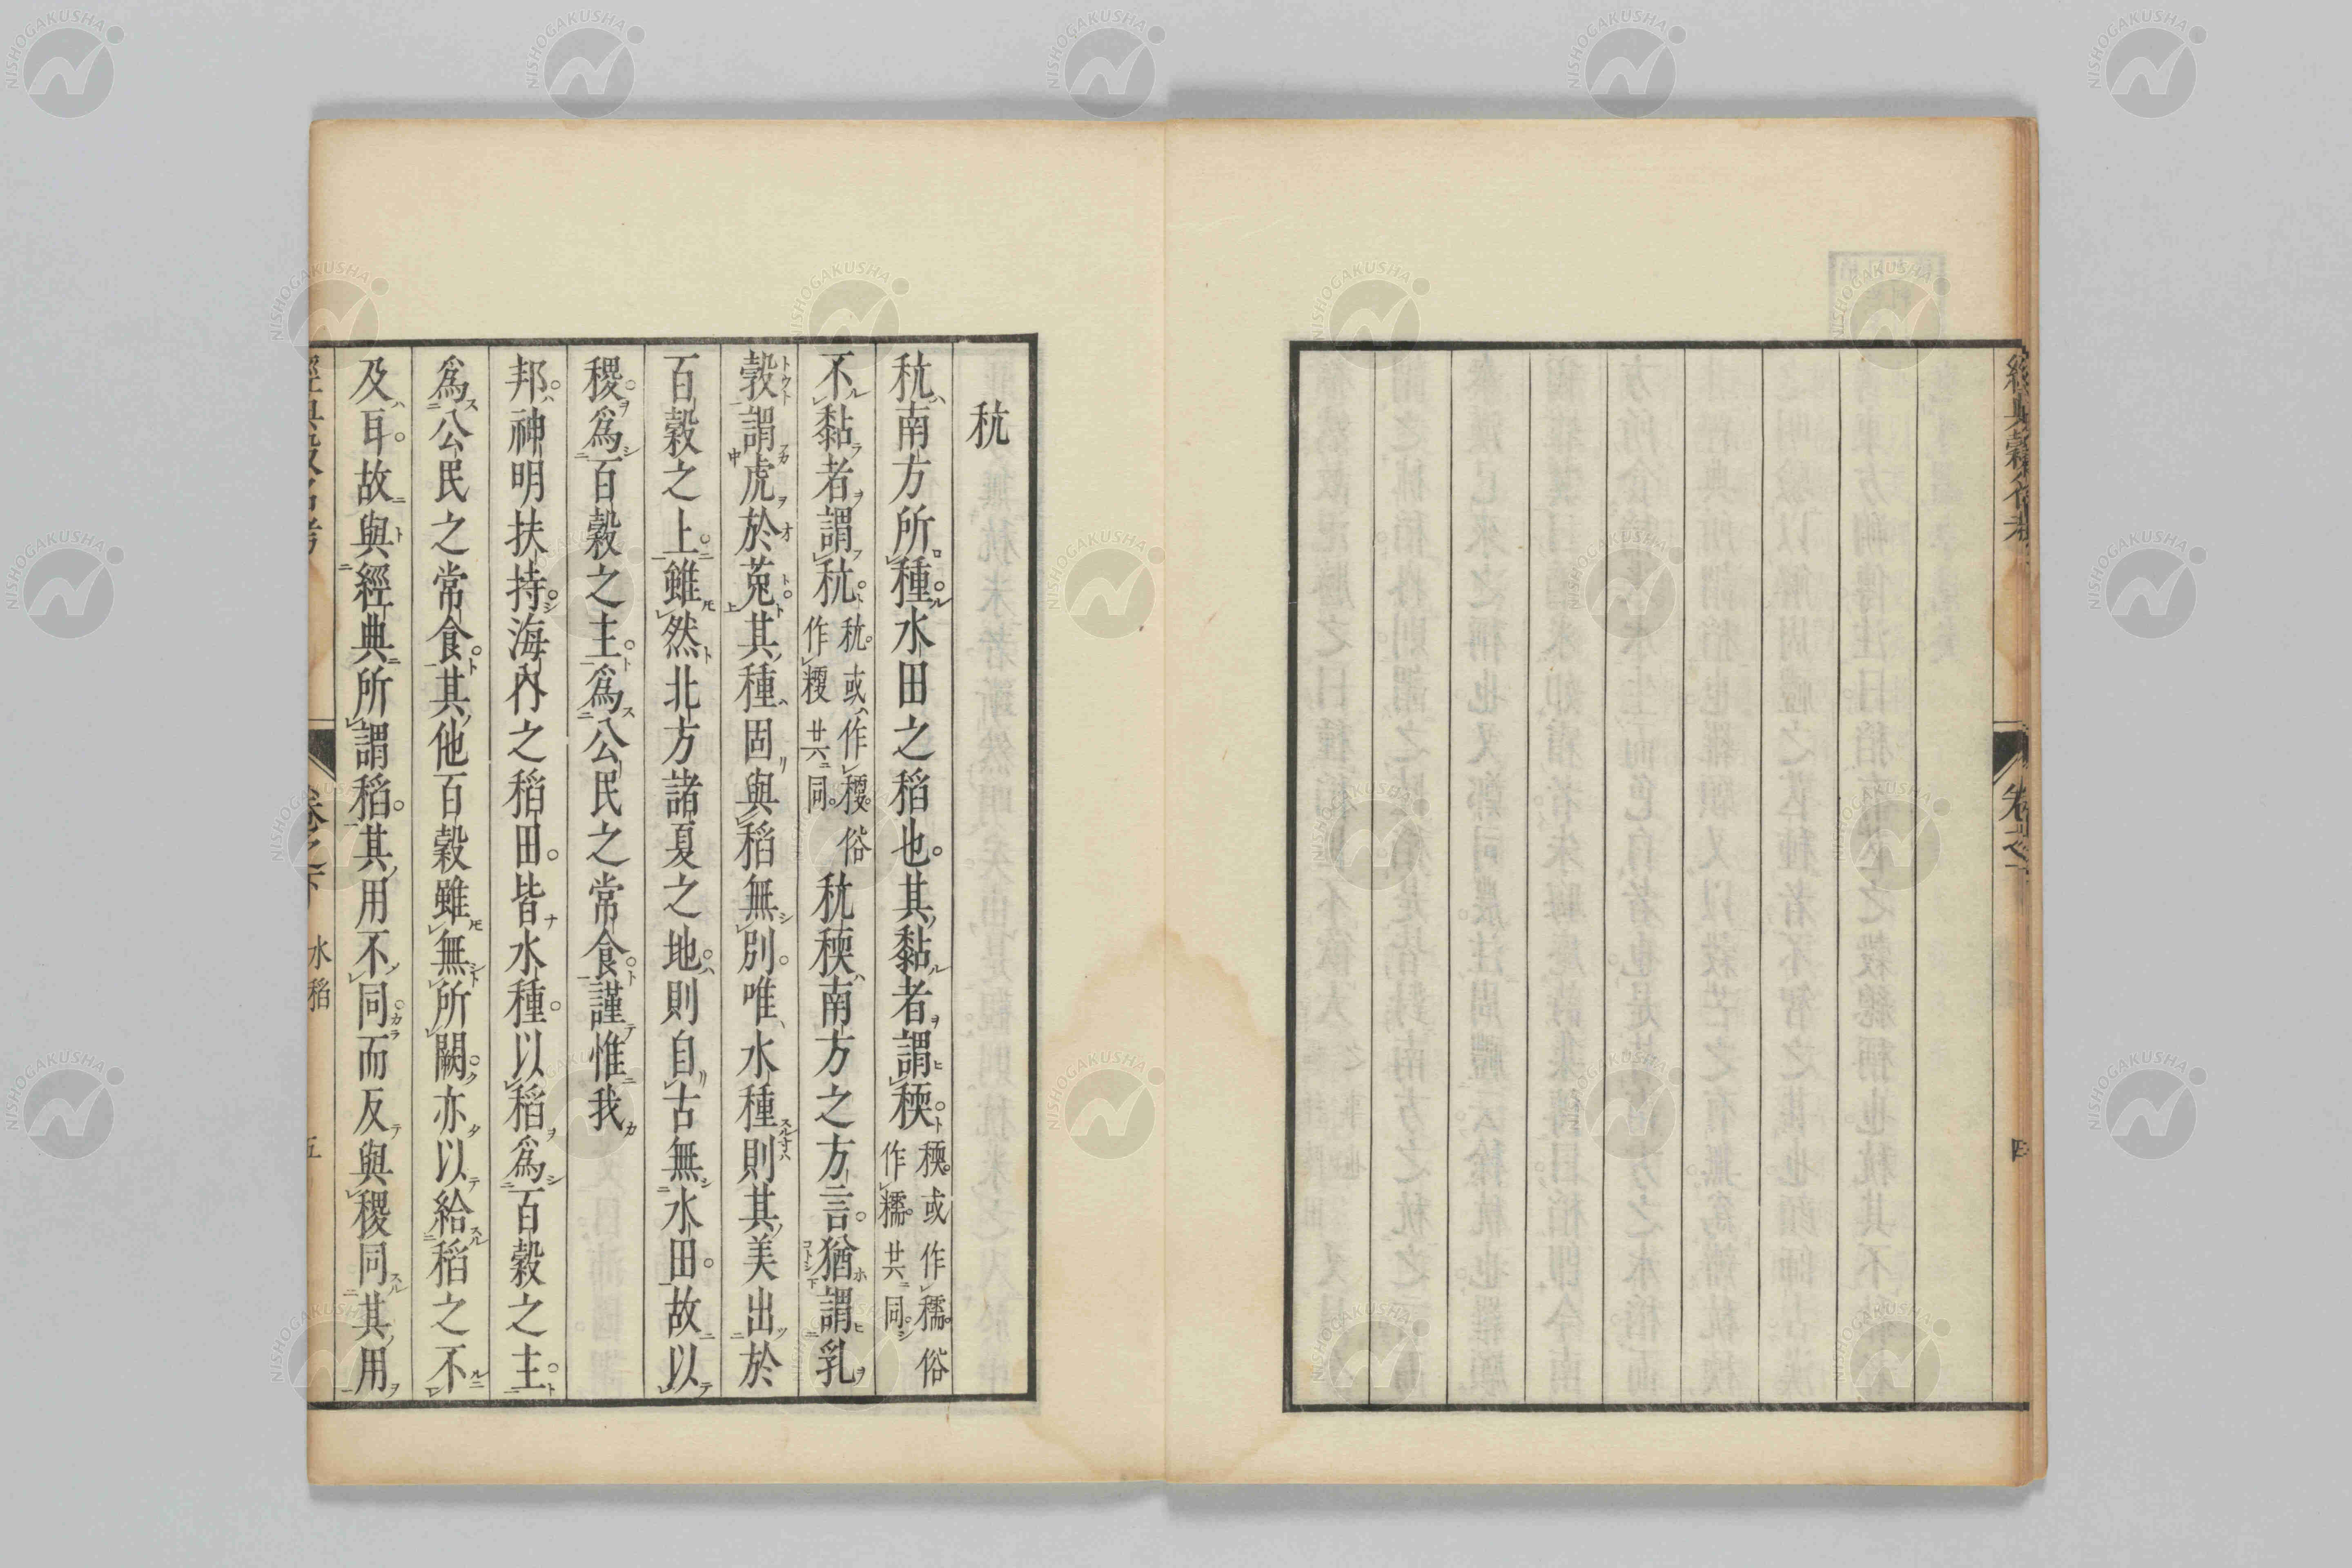 經典穀名考
四
秔
秔南方所種水田之稻也。其黏者謂稬。稬或作穤。俗作糯。共同。
不黏者謂秔。秔或作稉。俗作粳共同。秔稬南方之方言。猶謂乳
穀謂虎於菟其種固與稻無別。唯水種則其美出於
百穀之上。雖然北方諸夏之地。則自古無水田。故以
稷。爲百穀之主。爲公民之常食。謹惟我
邦。神明扶持。海內之稻田。皆水種。以稻爲百穀之主。
爲公民之常食。其他百穀雖無所闕。亦以給稻之不
及耳。故與經典所謂稻。其用不同。而反與稷同其用
經典穀名考 卷之下 水稻 五
NISHOGAKUSHA